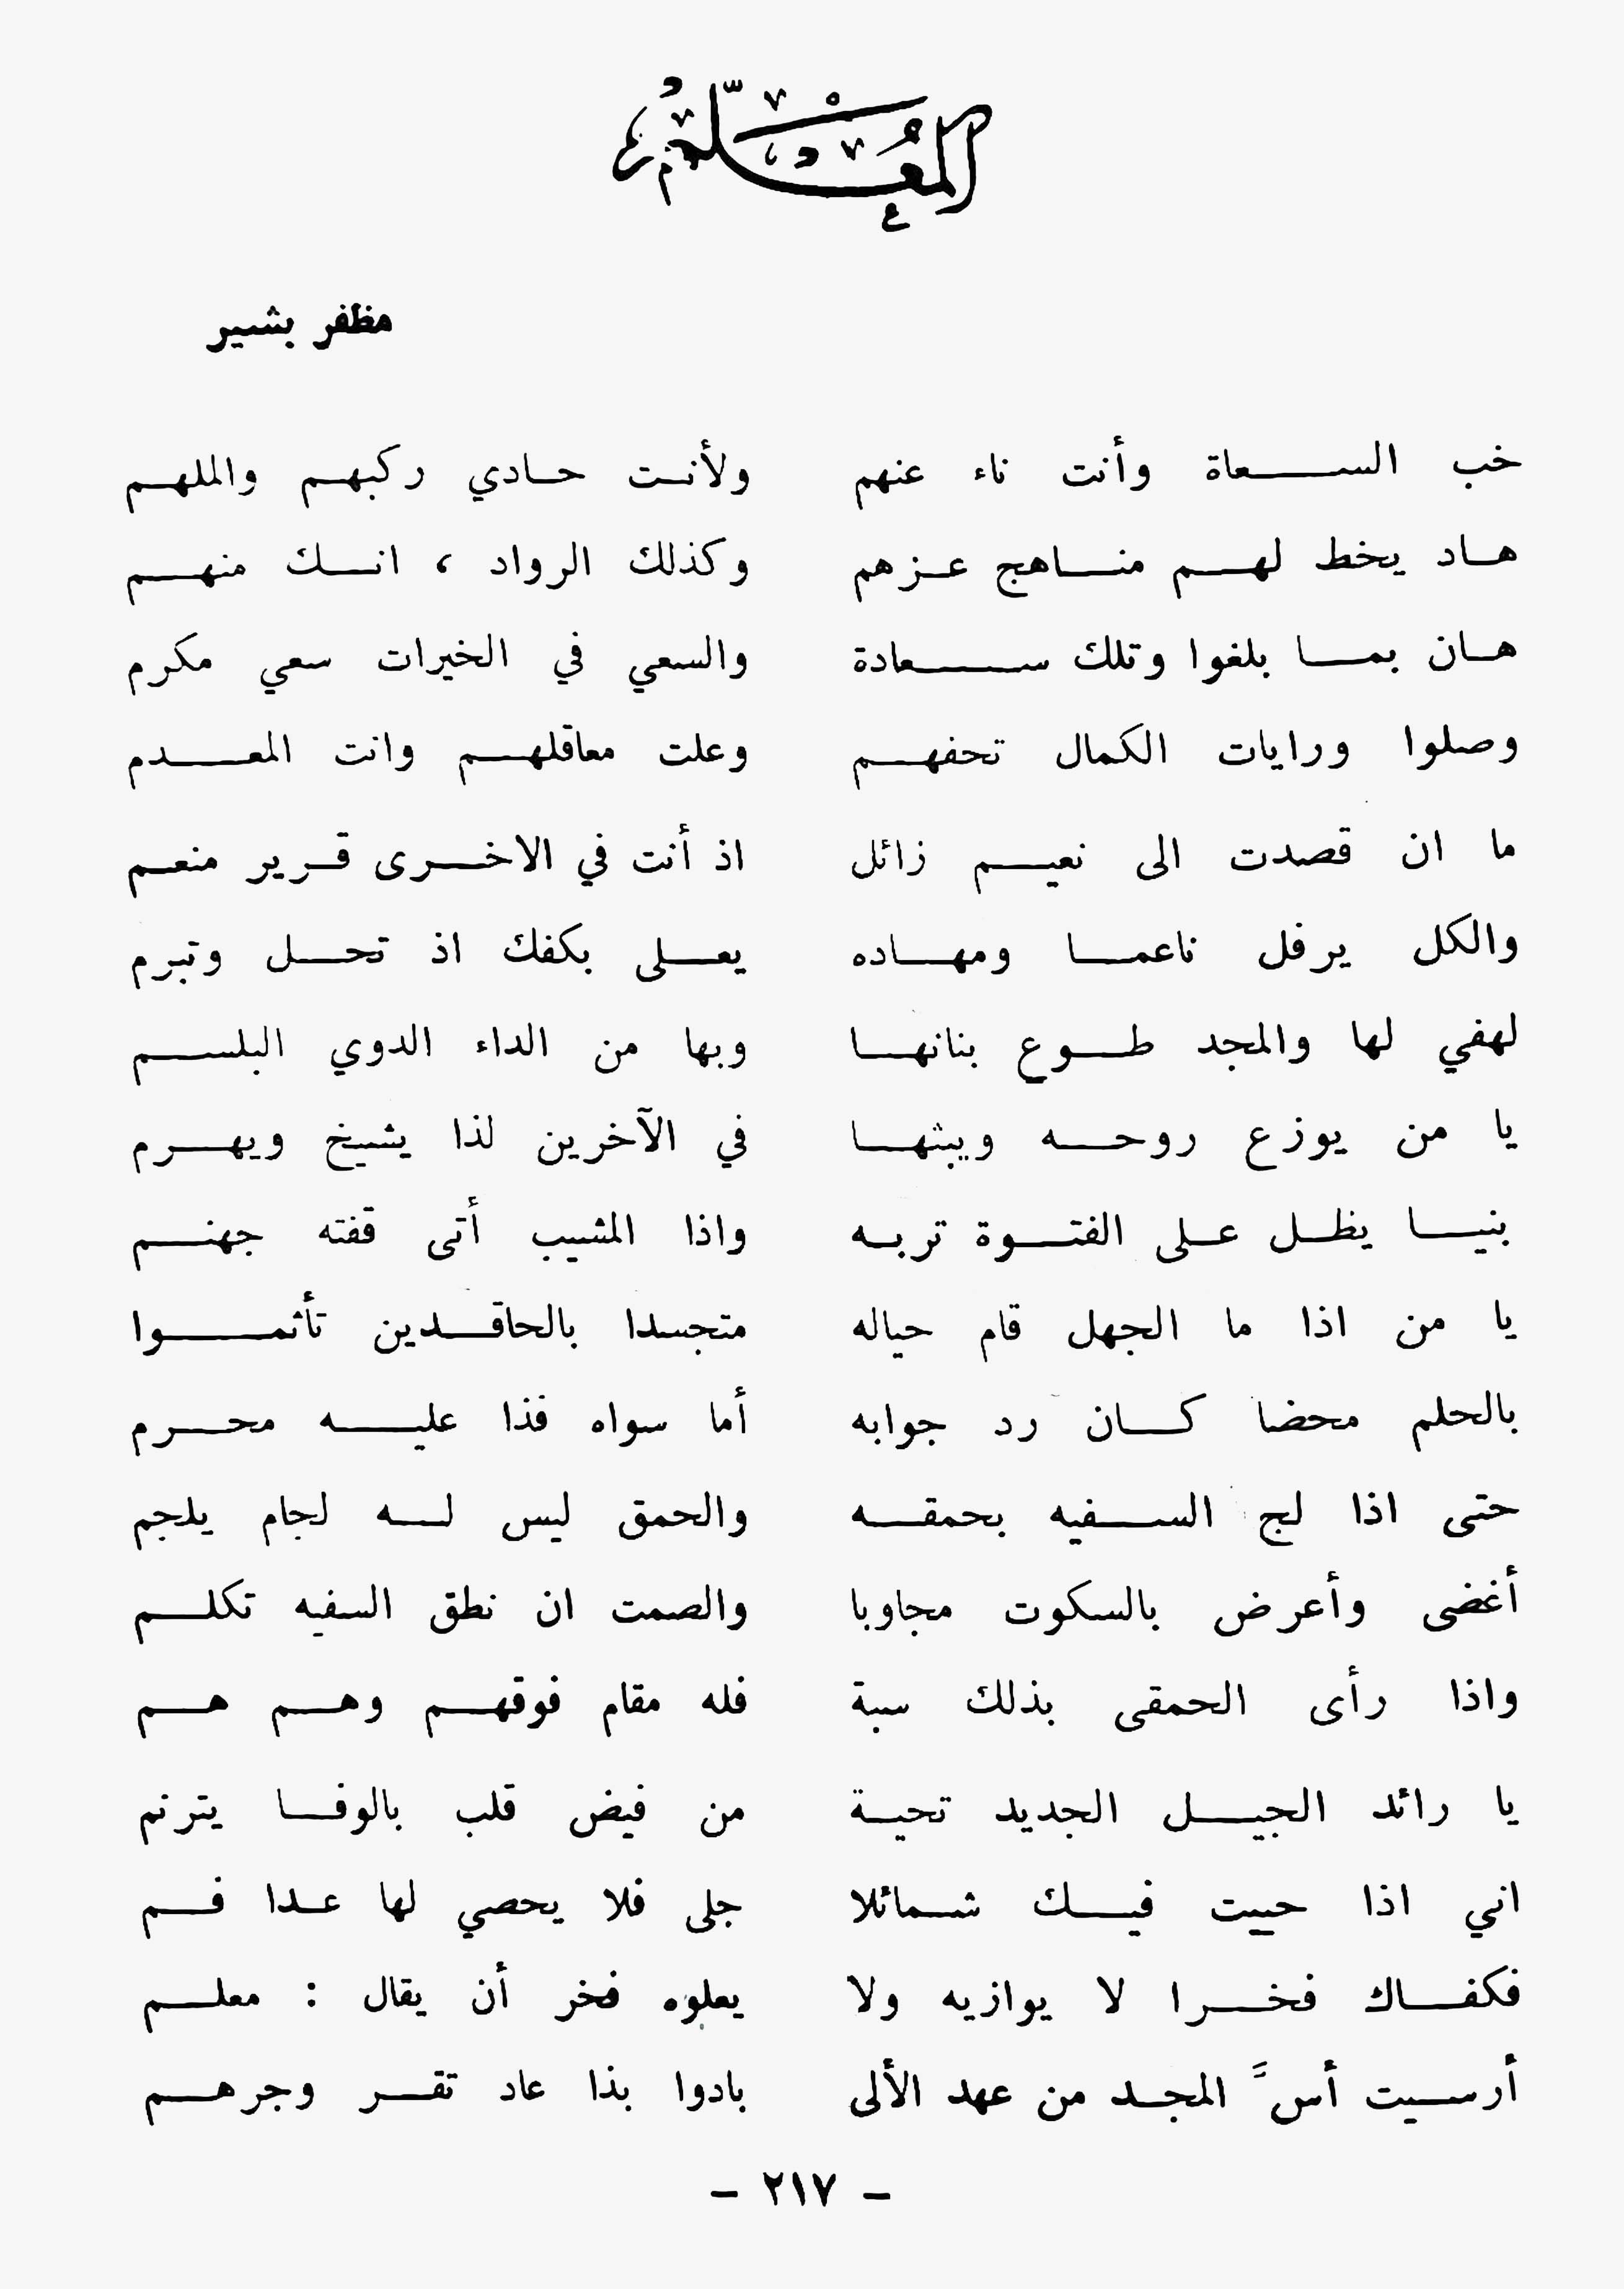 المُعَلِّم
مظفر بشير
خب السعاة وأنت ناء عنهم ولأنت حادي ركبهم والملهم
هاد يخط لهم مناهج عزهم وكذلك الرواد ، انك منهم
هان بما بلغوا وتلك سعادة والسعي في الخيرات سعي مكرم
وصلوا ورايات الكمال تحفهم وعلت معاقلهم وانت المعدم
ما ان قصدت الى نعيم زائل اذ أنت في الاخرى قرير منعم
والكل يرفل ناعما ومهاده يعلى بكفك اذ تحل وتبرم
لهفي لها والمجد طوع بنانها وبها من الداء الدوي البلسم
يا من يوزع روحه ويبثها في الآخرين لذا يشيخ ويهرم
بنيا يظل على الفتوة تربه واذا المشيب أتى قفته جهنم
يا من اذا ما الجهل قام حياله متجسدا بالحاقدين تأثموا
بالحلم محضا كان رد جوابه أما سواه فذا عليه محرم
حتى اذا لج السفيه بحمقه والحمق ليس له لجام يلجم
أغضى وأعرض بالسكوت مجاوبا والصمت ان نطق السفيه تكلم
واذا رأى الحمقى بذلك سبة فله مقام فوقهم وهم هم
يا رائد الجيل الجديد تحية من فيض قلب بالوفا يترنم
اني اذا حييت فيك شمائلا جلى فلا يحصي لها عدا فم
فكفاك فخرا لا يوازيه ولا يعلوه فخر أن يقال : معلم
أرسيت أسَّ المجد من عهد الألى بادوا بذا عاد تقر وجرهم
– ٢١٧ –